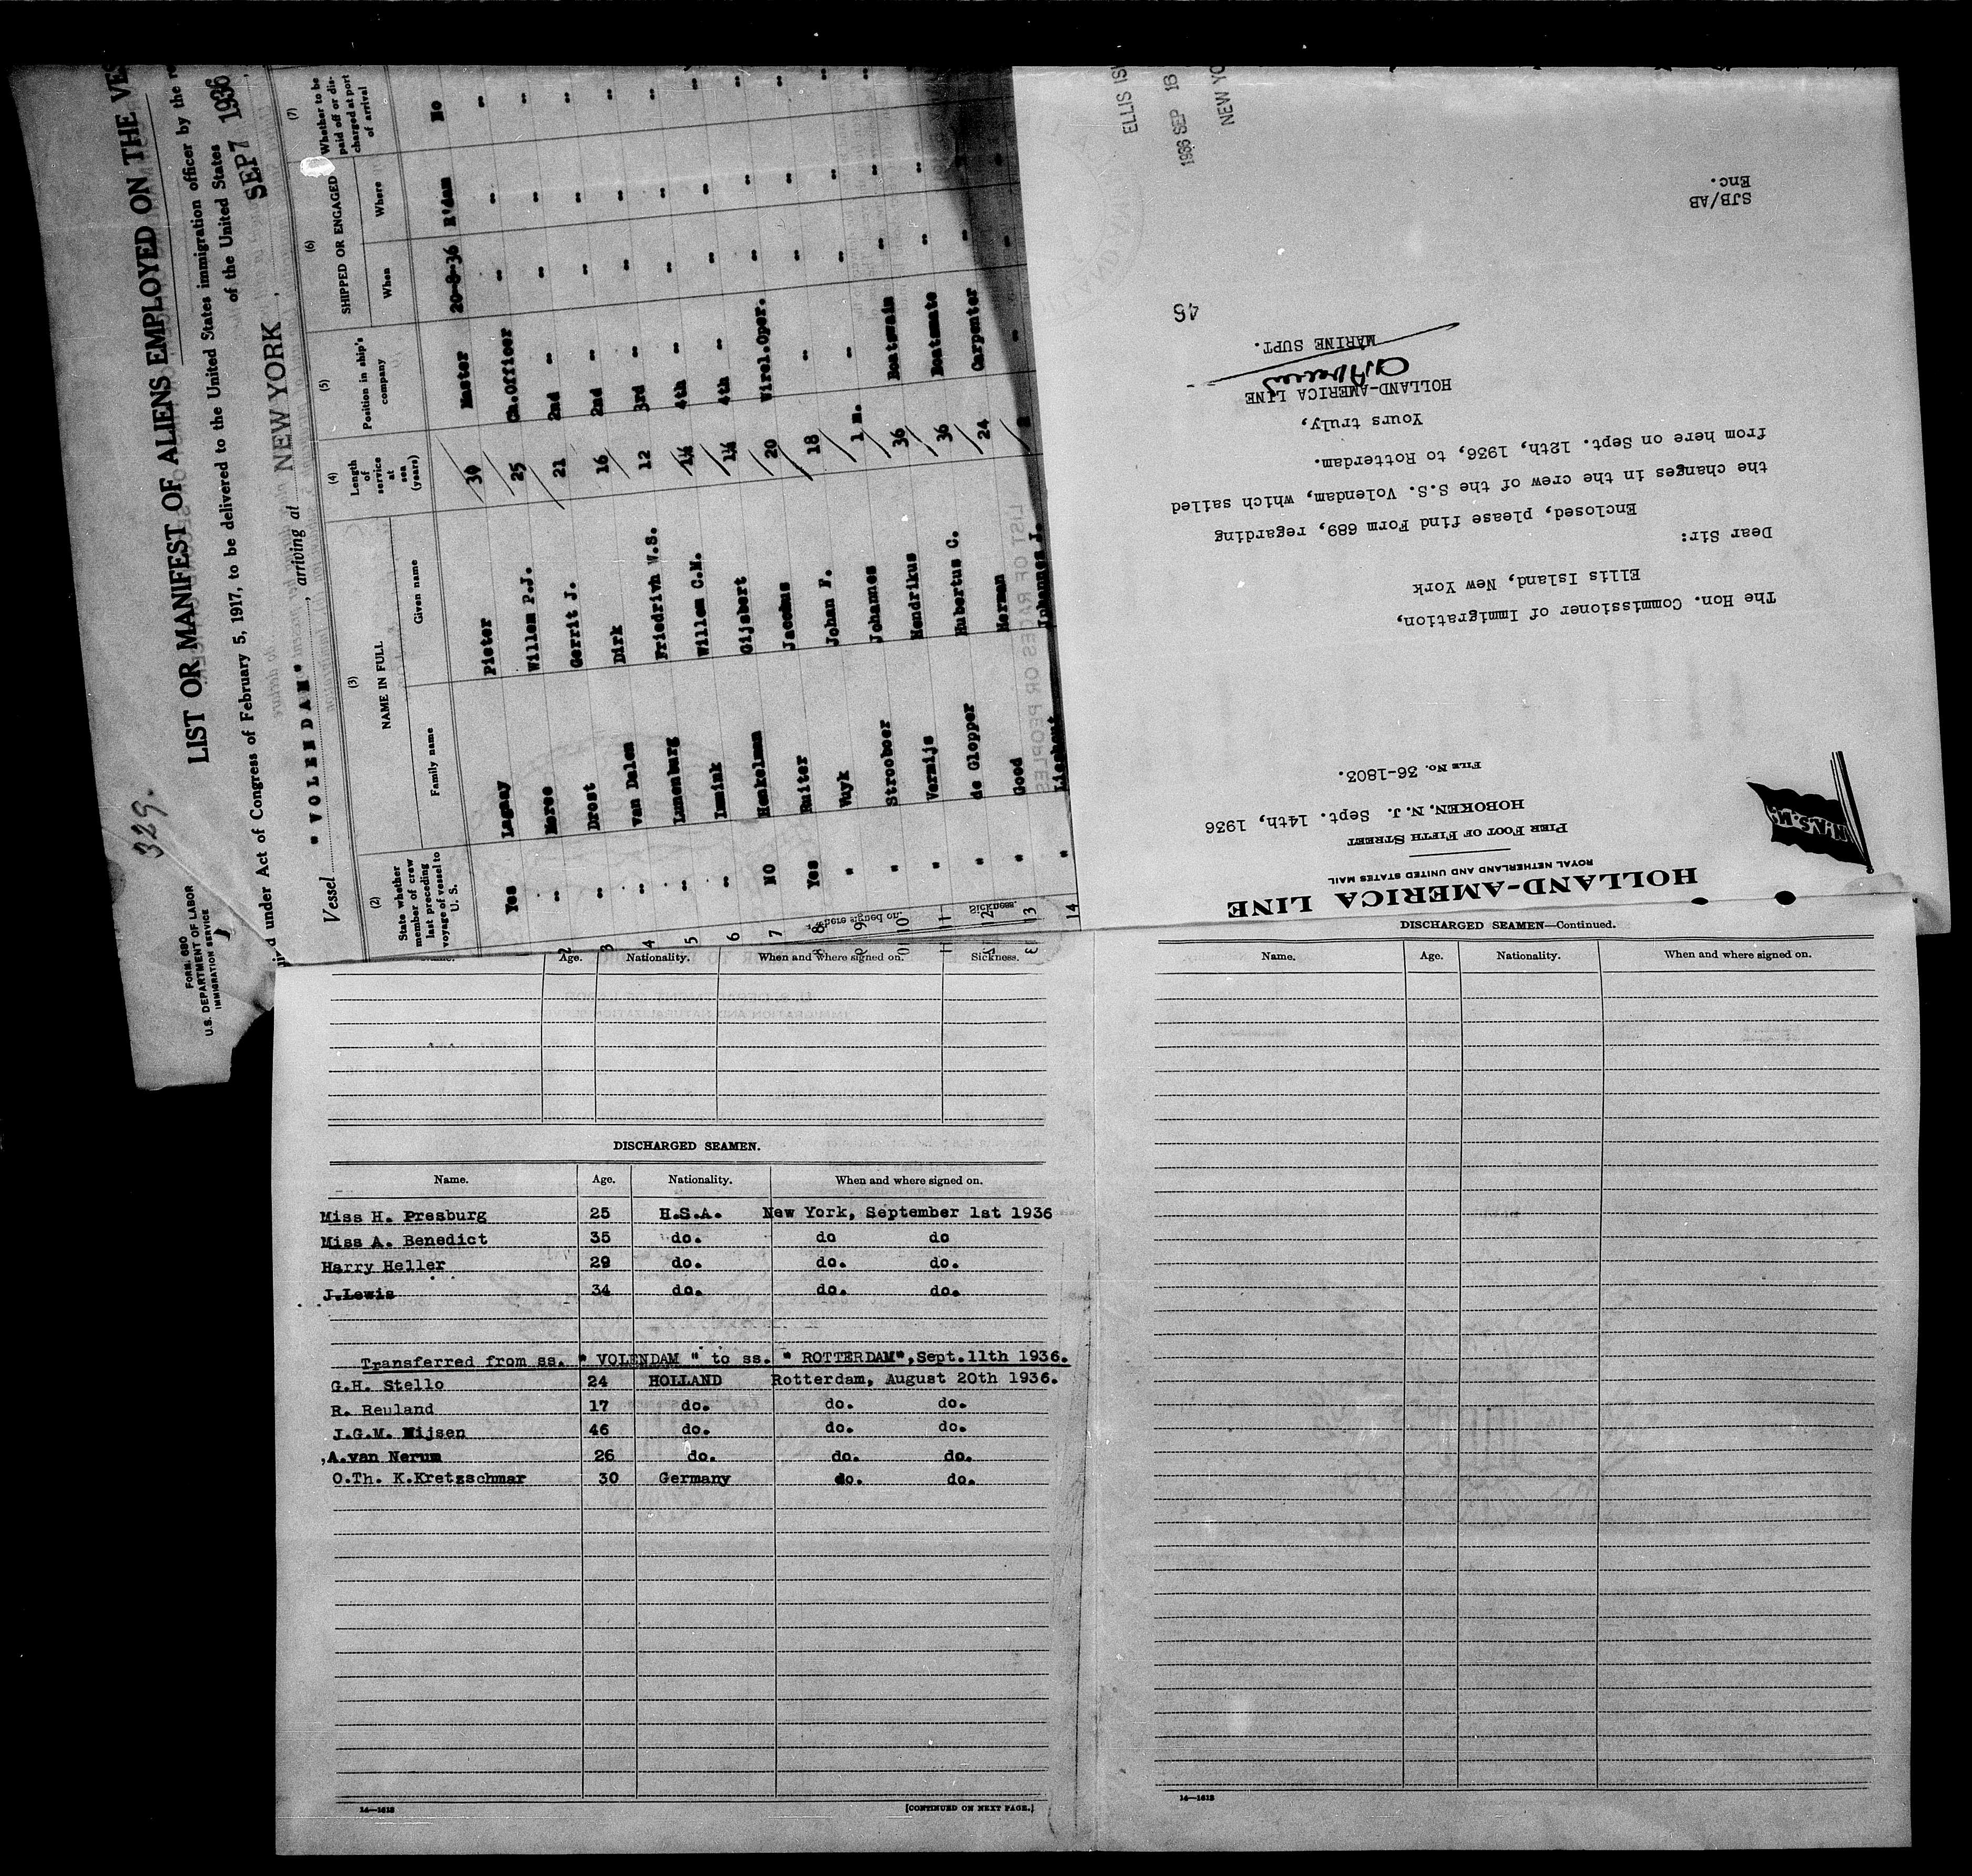 329.
FORM 680
U.S. DEPARTMENT OF LABOR
IMMIGRATION SERVICE
LIST OR MANIFEST OF ALIENS EMPLOYED ON THE
under Act of Congress of February 5, 1917, to be delivered to the United States immigration officer by the
of the United States
Vessel "VOLENDAM", arriving at NEW YORK, SEP 7 1936
(2) (3) (4) (5) (6) (7)
State whether member of crew last preceding voyage of vessel to U. S.
NAME IN FULL
Family name Given name
Length of service at sea (years)
Position in ship's company
SHIPPED OR ENGAGED
When Where
Whether to be paid off or discharged at port of arrival
Yes Pieter 30 Master 20-8-36 R'dam No
2 " Willem P.J. 25 Ch.Officer " " "
3 " Drost Gerrit J. 21 2nd " " " "
4 " van Dalen Dirk 16 2nd " " " "
5 " Lunenburg Friedrivh W.S. 12 3rd " " " "
6 " Immink Willem C.M. 1½ 4th " " " "
7 NO Henkelman Gijsbert 1½ 4th " " " "
8 Yes Ruiter Jacobus 20 Wirel.Oper. " " "
9 " Vuyk Johan F. 18 " " " "
10 " Strooboer Johannes 1 m. " " " "
11 " Vermijs Hendrikus 36 Boatswain " "
12 " de Glopper Hubertus C. 36 Boatsmate " "
13 " Good Herman 24 Carpenter " "
14 " Lieshout Johannes J. "
LIST OF RACES OR PEOPLES
HOLLAND-AMERICA LINE
ROYAL NETHERLAND AND UNITED STATES MAIL
PIER FOOT OF FIFTH STREET
HOBOKEN, N. J. Sept. 14th, 1936
FILE NO. 36-1803.
N.A.S.M.
The Hon. Commissioner of Immigration,
Ellis Island, New York
Dear Sir:
Enclosed, please find Form 689, regarding
the changes in the crew of the S.S. Volendam, which sailed
from here on Sept. 12th, 1936, to Rotterdam.
Yours truly,
HOLLAND-AMERICA LINE
MARINE SUPT.
45
SJB/AB
Enc.
ELLIS IS
1936 SEP 16
NEW YO
Age. Nationality. When and where signed on. Sickness.
DISCHARGED SEAMEN.
Name. Age. Nationality. When and where signed on.
Miss H. Presburg 25 H.S.A. New York, September 1st 1936
Miss A. Benedict 35 do. do do
Harry Heller 29 do. do. do.
J.Lewis 34 do. do. do.
Transferred from ss. " VOLENDAM " to ss. " ROTTERDAM",Sept.11th 1936.
G.H. Stello 24 HOLLAND Rotterdam, August 20th 1936.
R. Reuland 17 do. do. do.
J.G.M. Nijsen 46 do. do. do.
A.van Nerum 26 do. do. do.
O.Th. K.Kretzschmar 30 Germany do. do.
14—1618 [CONTINUED ON NEXT PAGE.]
DISCHARGED SEAMEN—Continued.
Name. Age. Nationality. When and where signed on.
14—1618